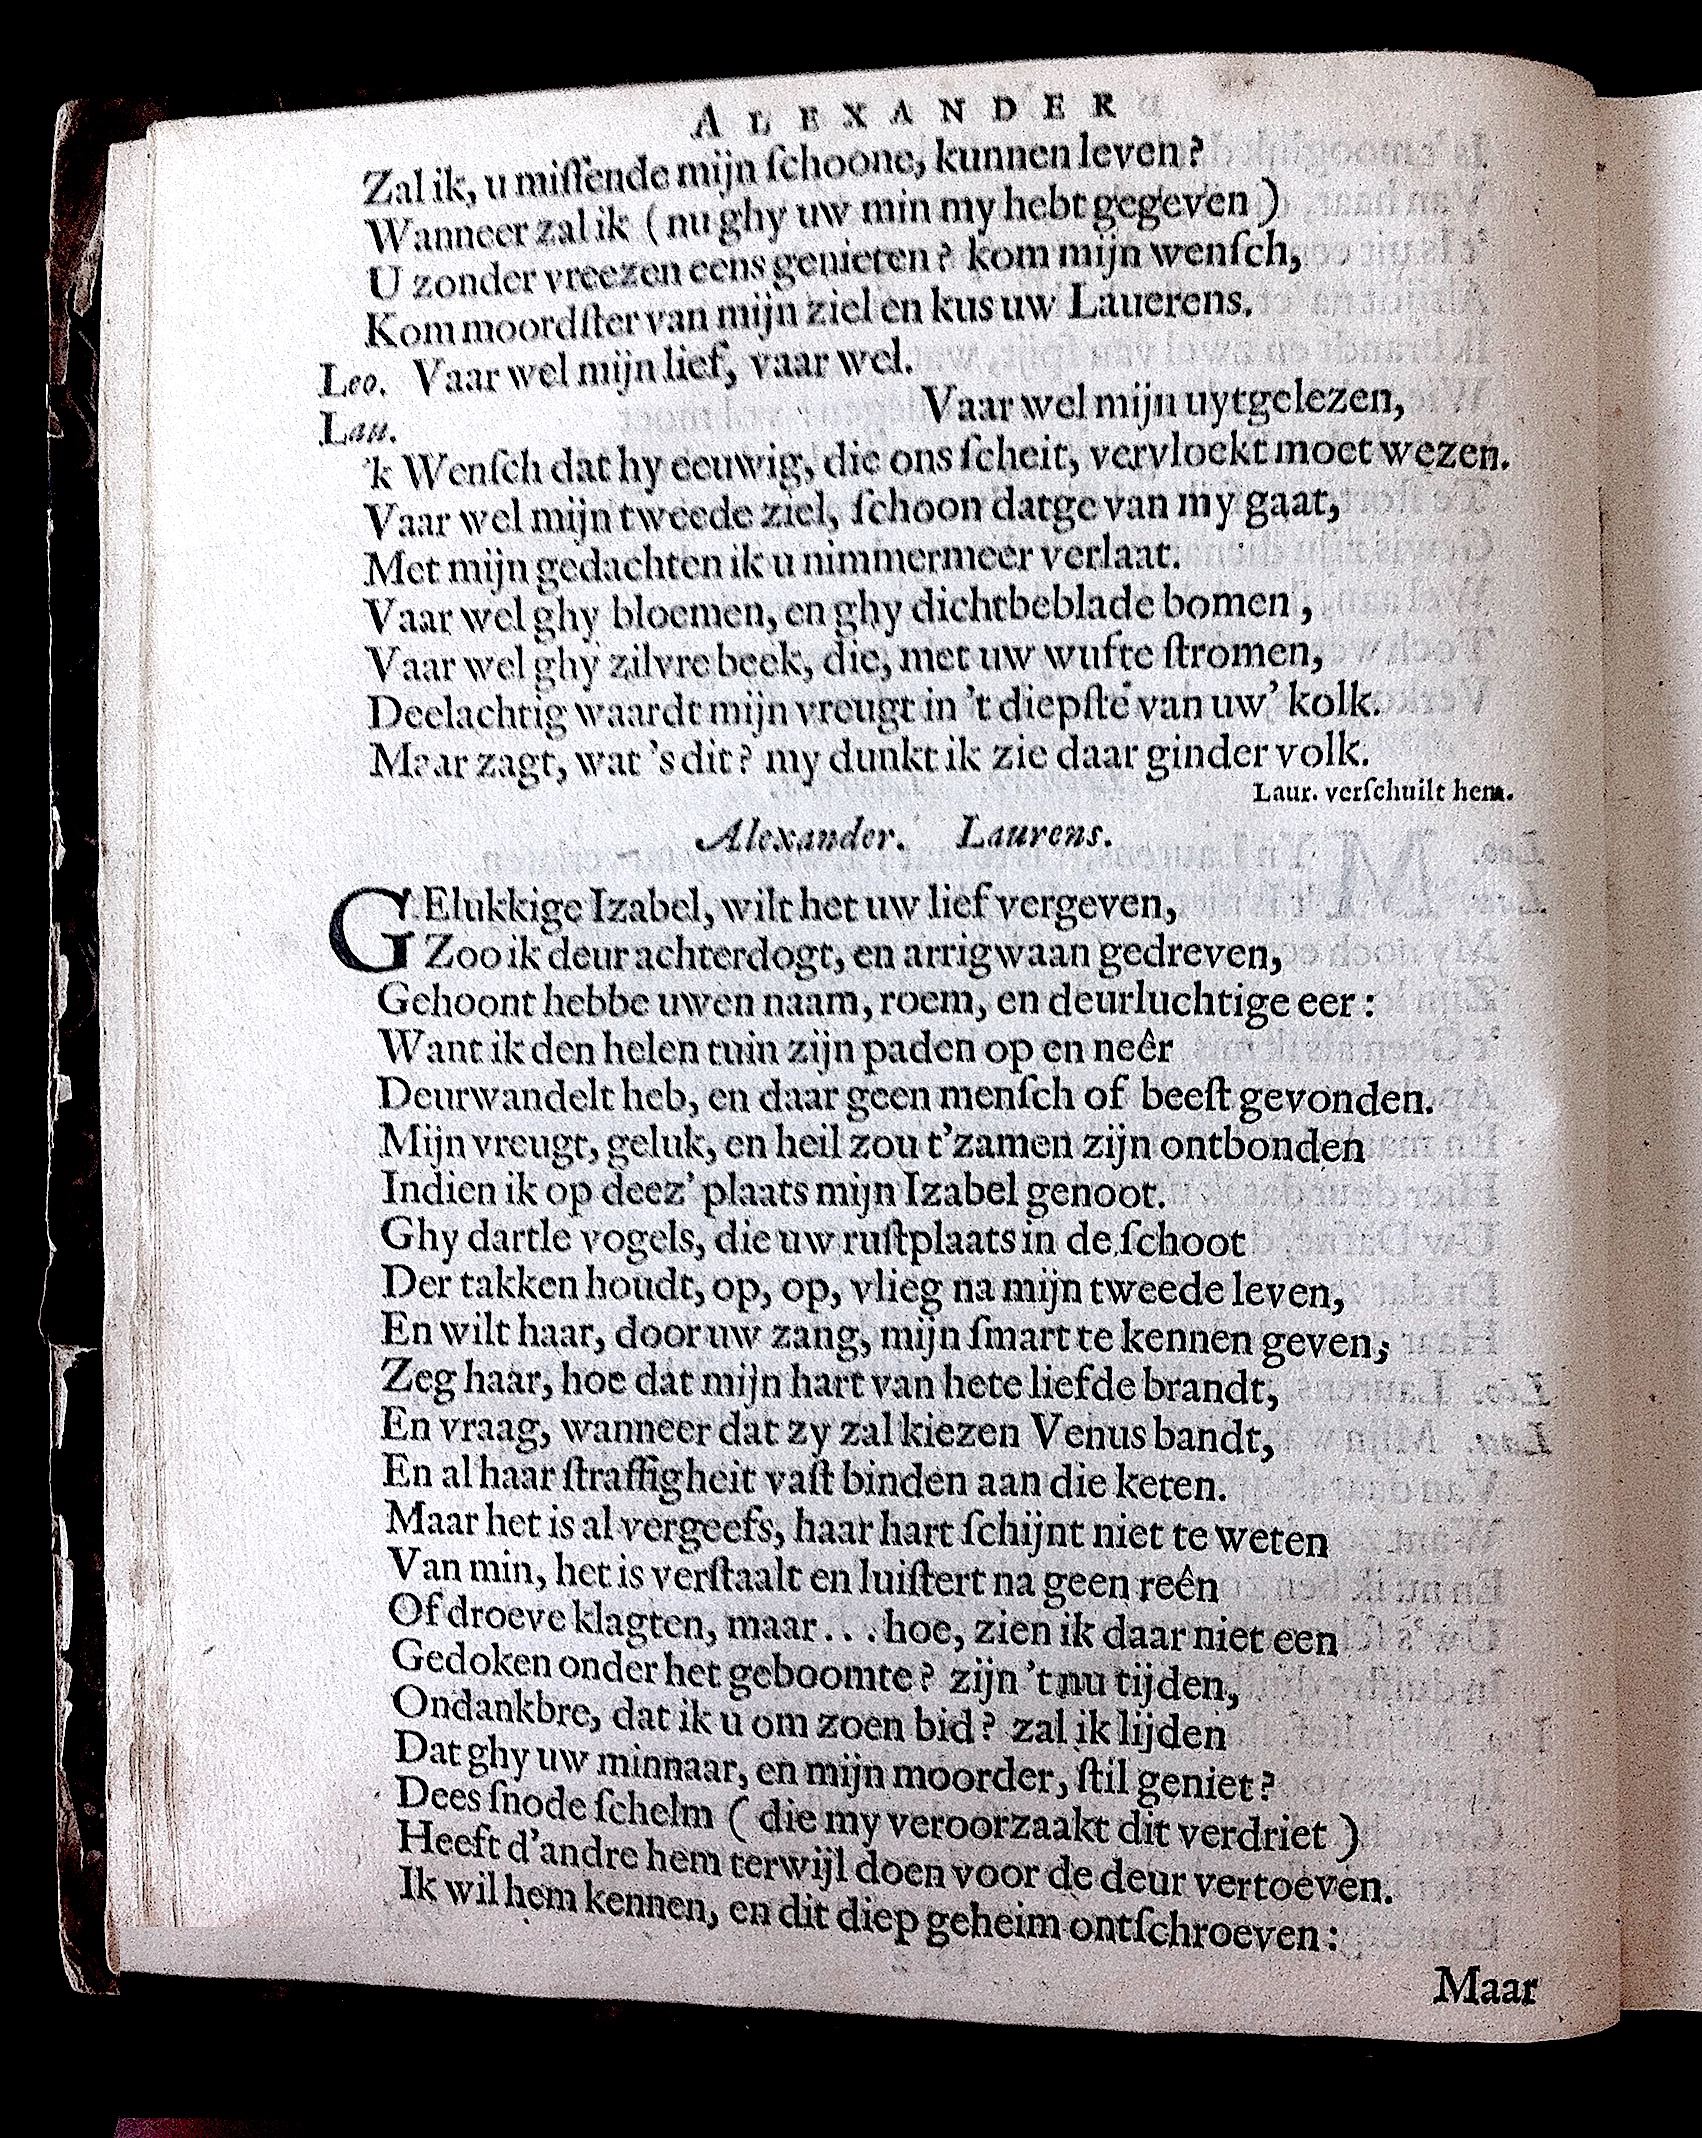 ALEXANDER
Zal ik, u miſſende mijn ſchoone, kunnen leven?
Wanneer zal ik (nu ghy uw min my hebt gegeven)
U zonder vreezen eens genieten? kom mijn wenſch,
Kom moordſter van mijn ziel en kus uw Lauerens.
Leo. Vaar wel mijn lief, vaar wel.
Lau. Vaar wel mijn uytgelezen,
'k Wenſch dat hy eeuwig, die ons ſcheit, vervloekt moet wezen.
Vaar wel mijn tweede ziel, ſchoon datge van my gaat,
Met mijn gedachten ik u nimmermeer verlaat.
Vaar wel ghy bloemen, en ghy dichtbeblade bomen,
Vaar wel ghy zilvre beek, die, met uw wufte ſtromen,
Deelachtig waardt mijn vreugt in 't diepſte van uw' kolk.
Maar zagt, wat 's dit? my dunkt ik zie daar ginder volk.
Laur. verſchuilt hem.
Alexander. Laurens.
GElukkige Izabel, wilt het uw lief vergeven,
Zoo ik deur achterdogt, en arrigwaan gedreven,
Gehoont hebbe uwen naam, roem, en deurluchtige eer:
Want ik den helen tuin zijn paden op en neêr
Deurwandelt heb, en daar geen menſch of beeſt gevonden.
Mijn vreugt, geluk, en heil zou t'zamen zijn ontbonden
Indien ik op deez' plaats mijn Izabel genoot.
Ghy dartle vogels, die uw ruſtplaats in de ſchoot
Der takken houdt, op, op, vlieg na mijn tweede leven,
En wilt haar, door uw zang, mijn ſmart te kennen geven;
Zeg haar, hoe dat mijn hart van hete liefde brandt,
En vraag, wanneer dat zy zal kiezen Venus bandt,
En al haar ſtraffigheit vaſt binden aan die keten.
Maar het is al vergeefs, haar hart ſchijnt niet te weten
Van min, het is verſtaalt en luiſtert na geen reên
Of droeve klagten, maar... hoe, zien ik daar niet een
Gedoken onder het geboomte? zijn 't nu tijden,
Ondankbre, dat ik u om zoen bid? zal ik lijden
Dat ghy uw minnaar, en mijn moorder, ſtil geniet?
Dees ſnode ſchelm (die my veroorzaakt dit verdriet)
Heeft d'andre hem terwijl doen voor de deur vertoeven.
Ik wil hem kennen, en dit diep geheim ontſchroeven:
Maar